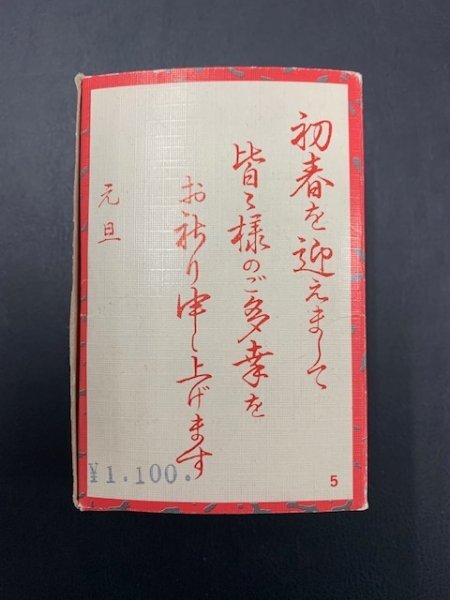 初春を迎えまして
皆々様のご多幸を
お祈り申し上げます
元旦
¥1.100.
5